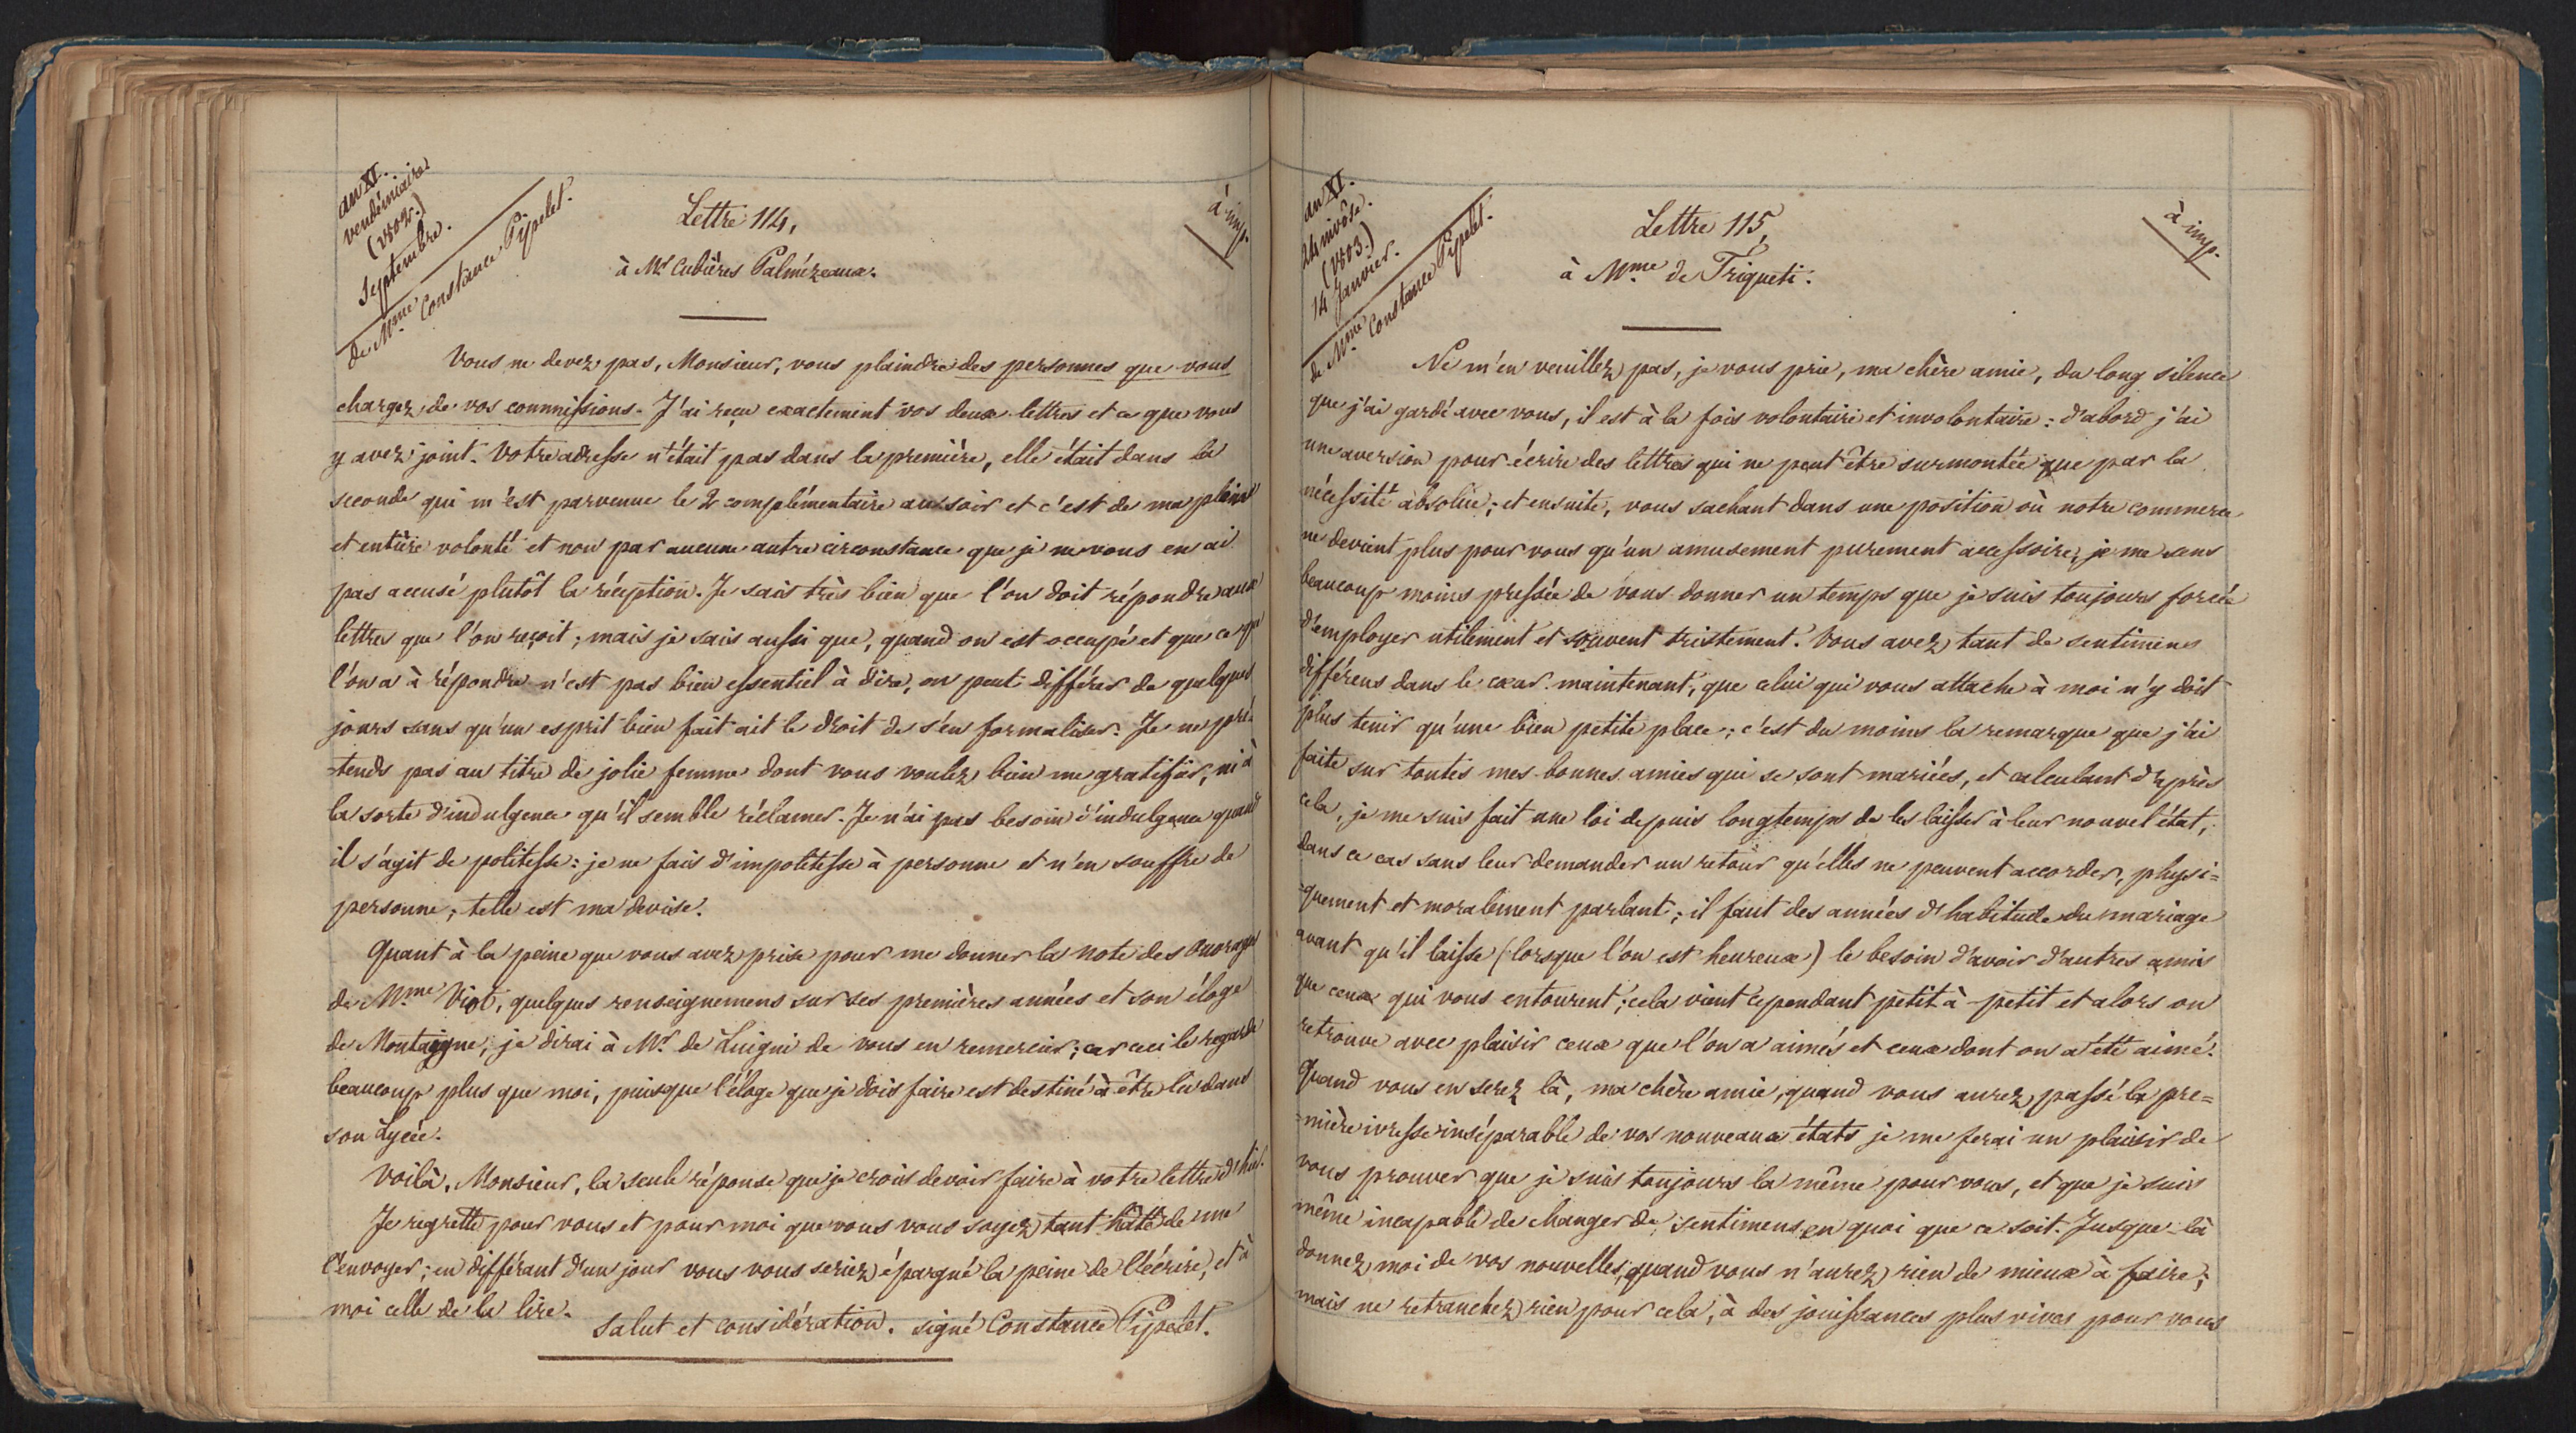 an XI.
vendémiaire
(1802.)
Septembre.
de Mme Constance Pipelet.
Lettre 114,
à imp.
à Mr Cubières Palmézeaux.
Vous ne devez pas, Monsieur, vous plaindre des personnes que vous
chargez de vos commissions. J'ai reçu exactement vos deux lettres et ce que vous
y avez joint. Votre adresse n'était pas dans la première, elle était dans la
seconde qui m'est parvenue le 2 complémentaire au soir et c'est de ma pleine
et entière volonté et non par aucune autre circonstance que je ne vous en ai
pas accusé plutôt la réception. Je sais très bien que l'on doit répondre aux
lettres que l'on reçoit; mais je sais aussi que, quand on est occupé et que ce que
l'on a à répondre n'est pas bien essentiel à dire, on peut différer de quelques
jours sans qu'un esprit bien fait ait le droit de s'en formaliser. Je ne pré-
-tends pas au titre de jolie femme dont vous voulez bien me gratifier, ni à
la sorte d'indulgence qu'il semble réclamer. Je n'ai pas besoin d'indulgence quand
il s'agit de politesse: je ne fais d'impolitesse à personne et n'en souffre de
personne; telle est ma devise.
Quant à la peine que vous avez prise pour me donner la note des ouvrages
de Mme Viot, quelques renseignemens sur ses premières années et son éloge
de Montaigne, je dirai à Mr de Luigni de vous en remercier; car ceci le regarde
beaucoup plus que moi, puisque l'éloge que je dois faire est destiné à être lu dans
son Lycée.
Voilà, Monsieur, la seule réponse que je crois devoir faire à votre lettre d'hier.
Je regrette pour vous et pour moi que vous vous soyez tant hâté de me
l'envoyer; en différant d'un jour vous vous seriez épargné la peine de l'écrire, et à
moi celle de la lire.
Salut et considération. signé Constance Pipelet.
an XI.
24 nivôse.
(1803.)
14 Janvier.
de Mme Constance Pipelet.
Lettre 115,
à imp.
à Mme de Triqueti.
Ne m'en veuillez pas, je vous prie, ma chère amie, du long silence
que j'ai gardé avec vous, il est à la fois volontaire et involontaire: d'abord j'ai
une aversion pour écrire des lettres qui ne peut être surmontée que par la
nécessité absolue; et ensuite, vous sachant dans une position où notre commerce
ne devient plus pour vous qu'un amusement purement accessoire, je me sens
beaucoup moins pressée de vous donner un temps que je suis toujours forcée
d'employer utilement et souvent tristement. Vous avez tant de sentimens
différens dans le cœur maintenant, que celui qui vous attache à moi n'y doit
plus tenir qu'une bien petite place; c'est du moins la remarque que j'ai
faite sur toutes mes bonnes amies qui se sont mariées, et calculant d'après
cela, je me suis fait une loi depuis longtemps de les laisser à leur nouvel état,
dans ce cas sans leur demander un retour qu'elles ne peuvent accorder, physi=
-quement et moralement parlant; il faut des années d'habitude du mariage
avant qu'il laisse (lorsque l'on est heureux) le besoin d'avoir d'autres amis
que ceux qui vous entourent; cela vient cependant petit à petit et alors on
retrouve avec plaisir ceux que l'on a aimés et ceux dont on a été aimé.
Quand vous en serez là, ma chère amie, quand vous aurez passé la pre=
-mière ivresse inséparable de vos nouveaux états je me ferai un plaisir de
vous prouver que je suis toujours la même pour vous, et que je suis
même incapable de changer de sentimens en quoi que ce soit. Jusque là
donnez moi de vos nouvelles, quand vous n'aurez rien de mieux à faire;
mais ne retranchez rien pour cela, à des jouissances plus vives pour vous